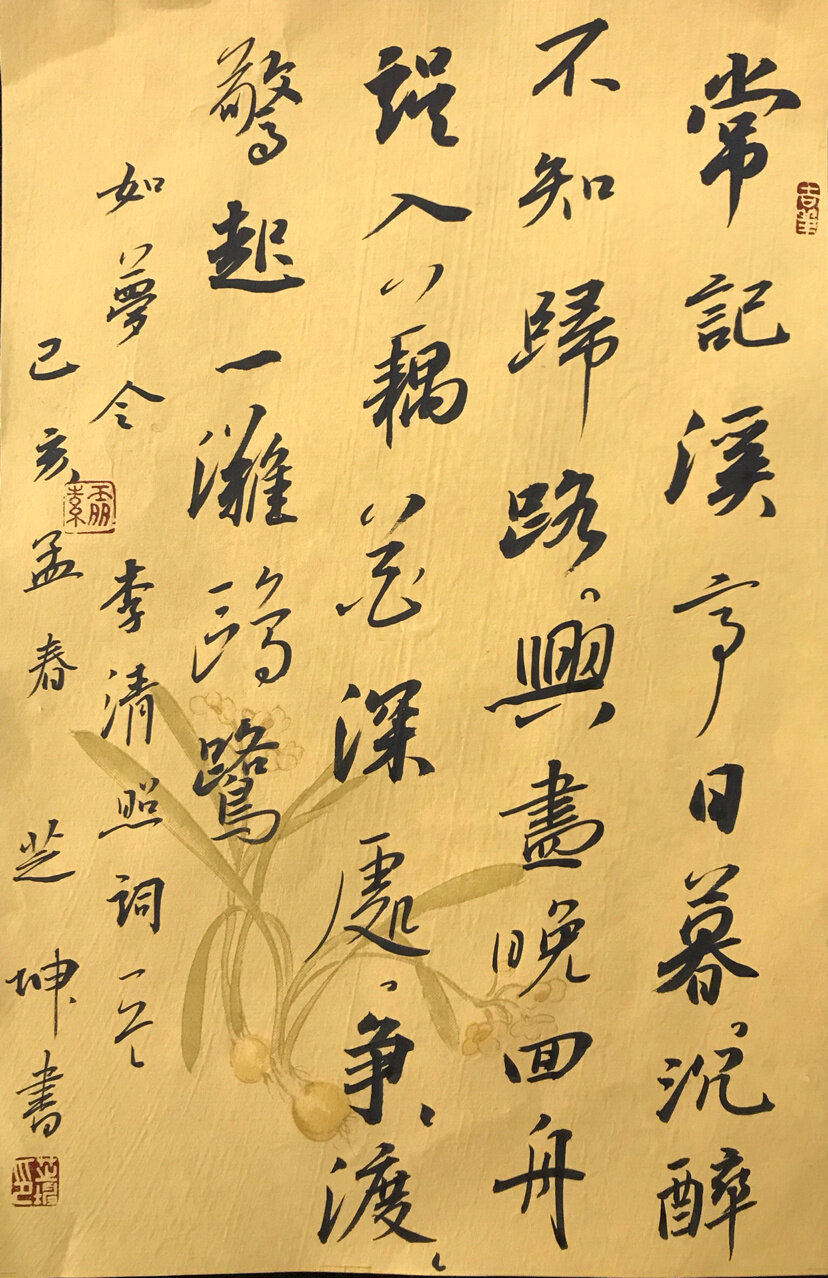 常記溪亭日暮、沉醉
不知歸路、興盡晚回舟
誤入藕花深處、争、渡、
驚起一灘鷗鷺
如夢令 李清照詞一首
己亥孟春 芝坤書